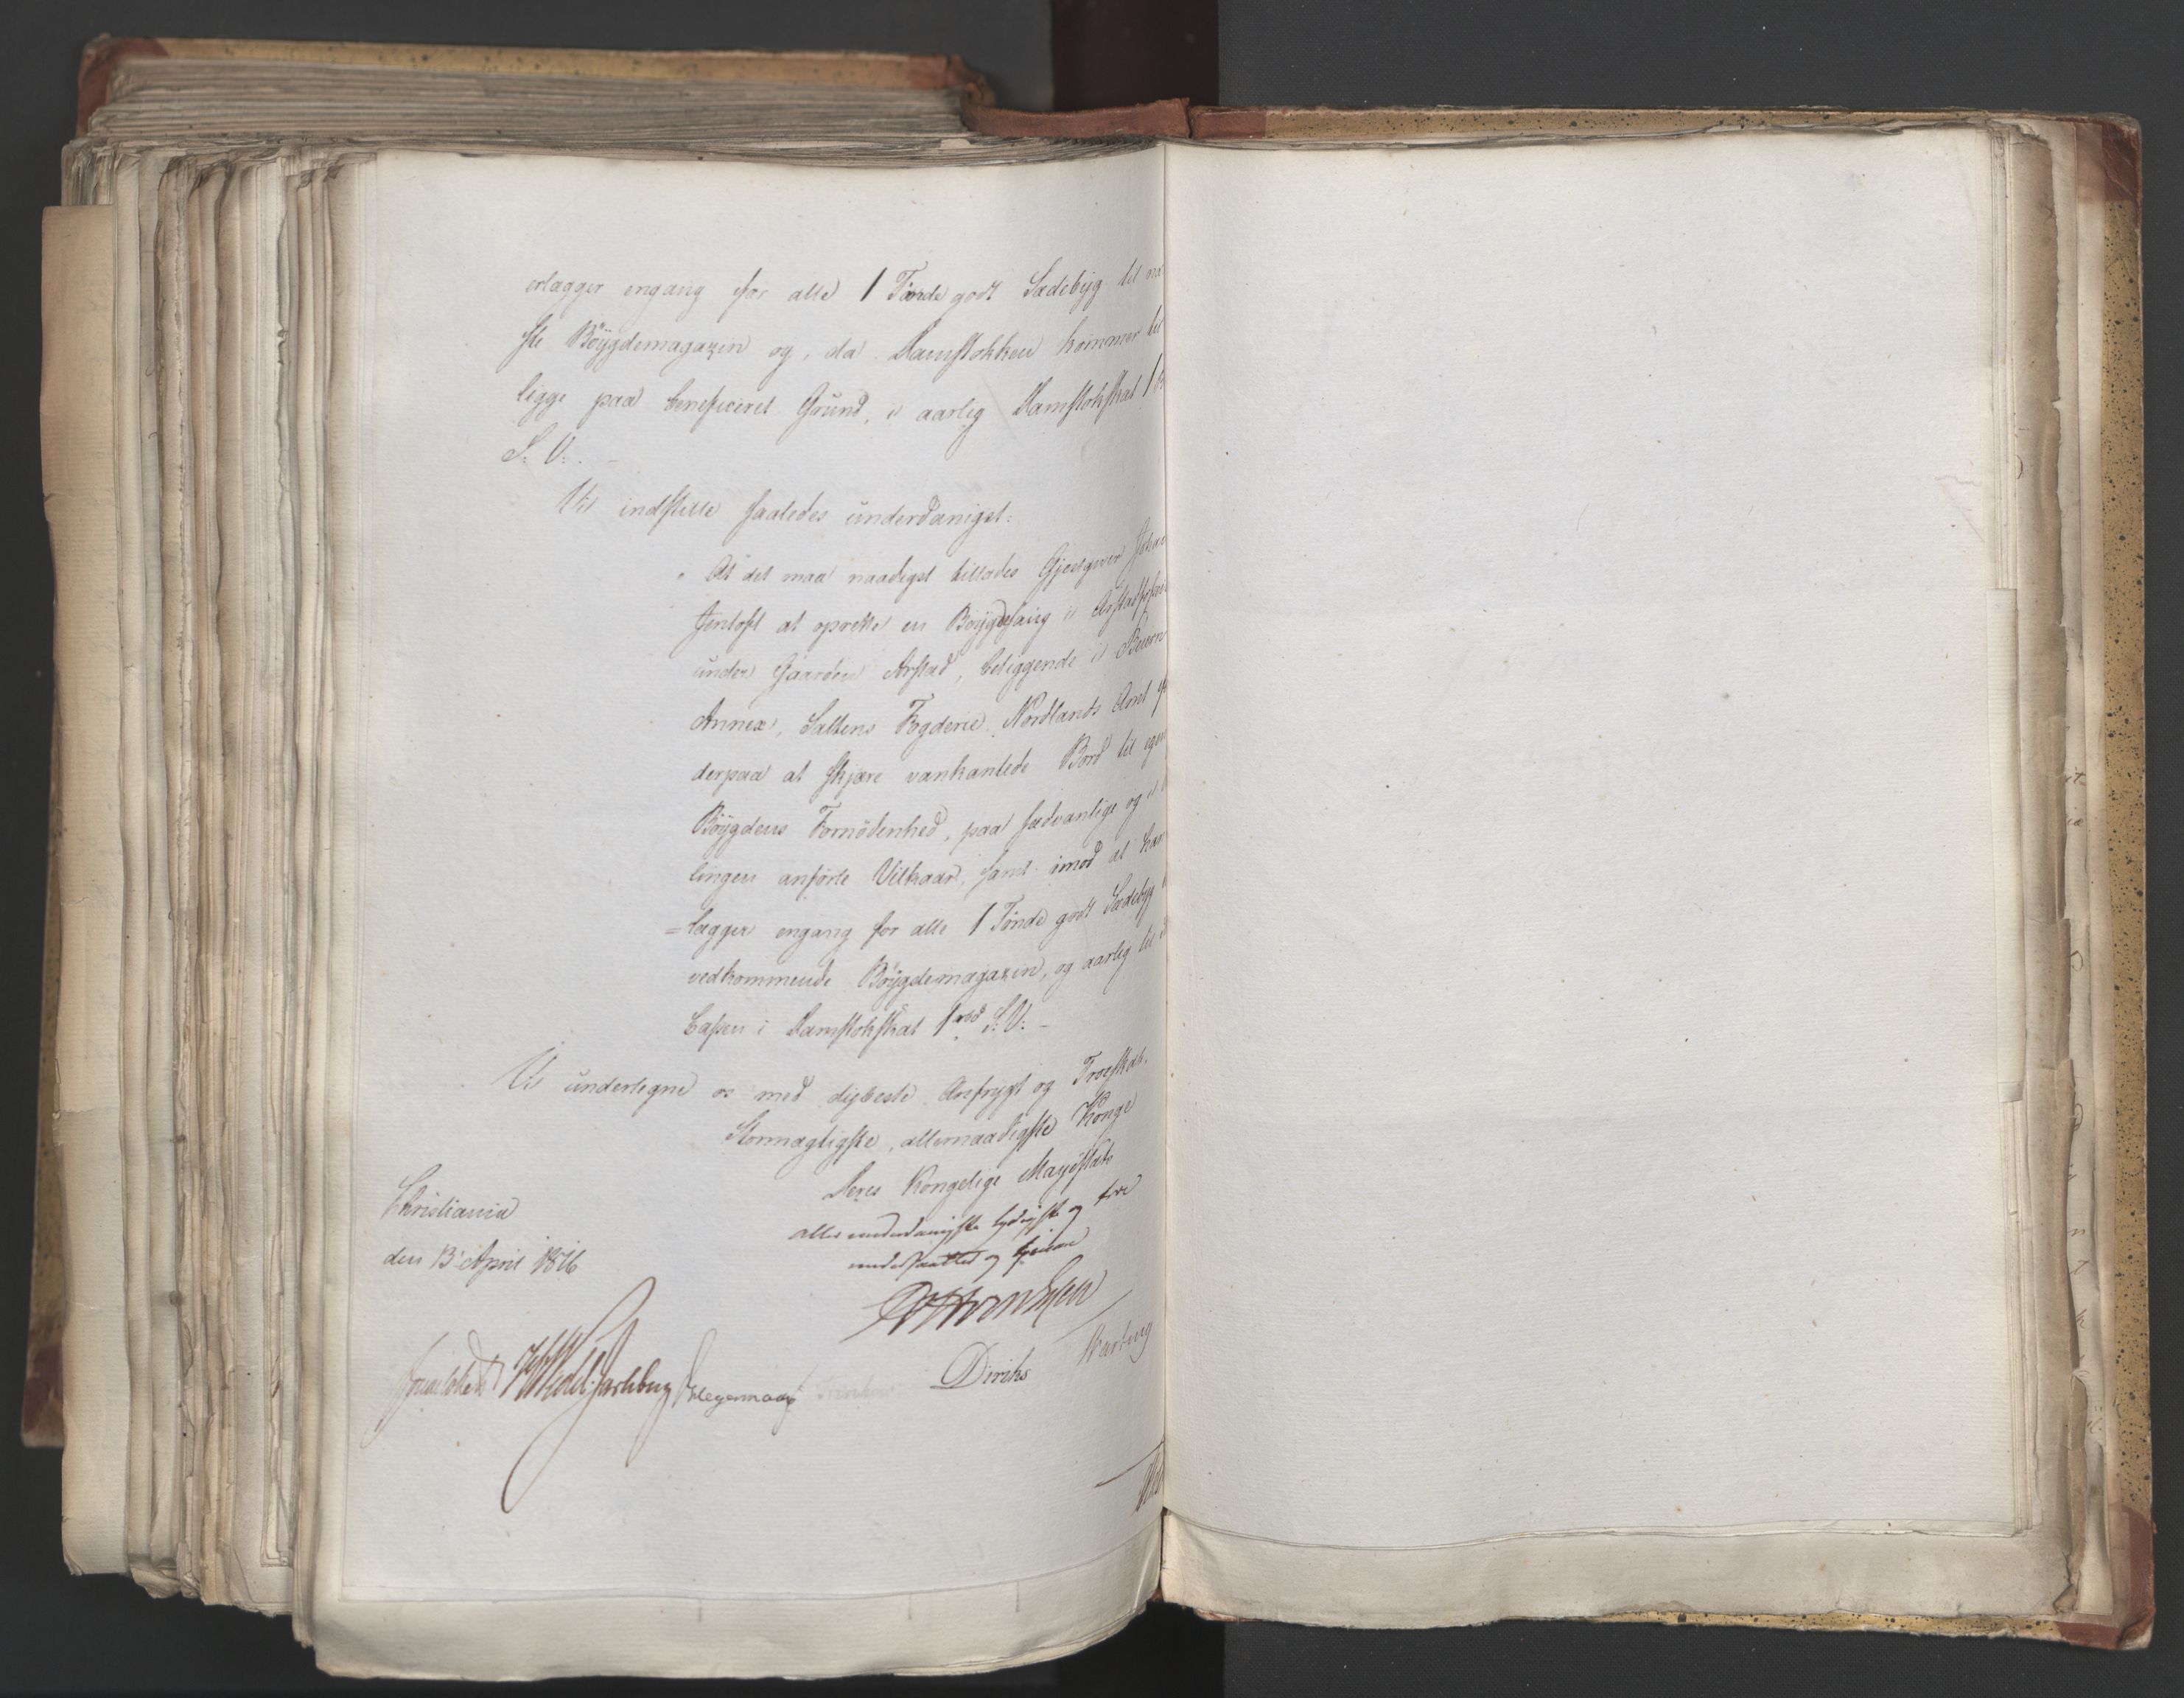 erlægger engang for alle 1 Tønde godt Sædebyg til næ
ste Böygdemagazin og, da Damstokken kommer til
ligge paa beneficeret Grund, i aarlig Damstokskat 1
S: V:. –
Vi indstille saaledes underdanigst:
" At det maa naadigst tillades Gjestgiver Johan
Jentoft at oprette en Böygdesaug i Arstadfossen
under Gaarden Arstad, beliggende i Beiern
Annex, Saltens Fogderie Nordlands Amt
derpaa at skjære vankantede Bord til egen
Böygdens Fornödenhed, paa sædvanlige og i
lingen anförte Vilkaar, samt imod at han
=lægger engang for alle 1 Tönde godt Sædebyg
vedkommende Böygdemagazin, og aarlig til
Casser i Damstokskat 1 rbd S: V: –
Vi undertegne os med dybeste Ærefrygt og Troeskab.
Stormægtigste, allernaadigste Konge
Deres Kongelige Majestæts
allerunderdanigste lydigste og troe
undersaatter og tjenere
Christiania
den 13 April 1816
Sommerhielm
Wedel Jarlsberg
Hegermann
Diriks